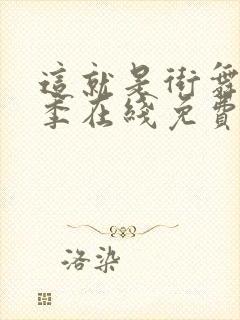 這就是街舞
季在綫免費
洛染